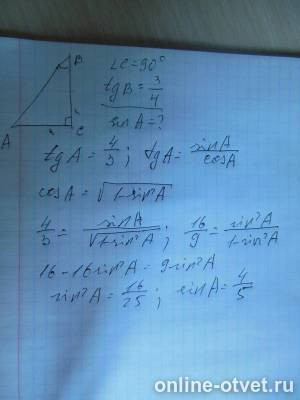 B
∠C=90°
tgB=3/4
sinA=?
A
C
tgA=4/3; tgA=sinA/cosA
cosA=√1-sin²A
4/3=sinA/√1-sin²A; 16/9=sin²A/1-sin²A
16-16sin²A=9sin²A
sin²A=16/25; sinA=4/5
online-otvet.ru